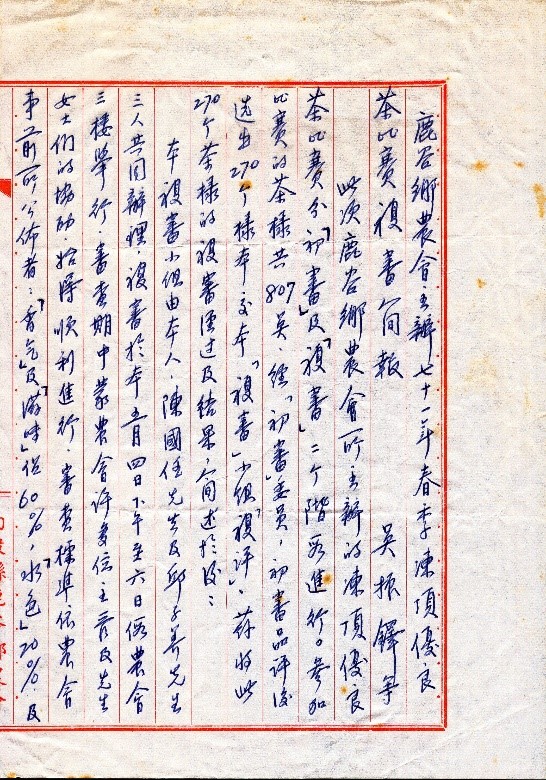 鹿谷鄉農會主辦七十一年春季凍頂優良
茶比賽複審簡報 吳振鐸等
此次鹿谷鄉農會所主辦的凍頂優良
茶比賽分「初審」及「複審」二个階段進行。參加
比賽的茶樣共807吳,經「初審」委員,初審品評後
選出270个樣本交本「複審」小組「複評」,茲將此
270个茶樣的複審經過及結果,簡述於後:
本複審小組由本人,陳國任先生及邱子善先生
三人共同辦理,複審於本五月四日下午至六日假農會
三楼舉行,審查期中蒙農會許多位主管及先生
女士們的協助,始得順利進行,審查標準依農會
事前所公佈者:「香气」及「滋味」佔60%,「水色」20%,及